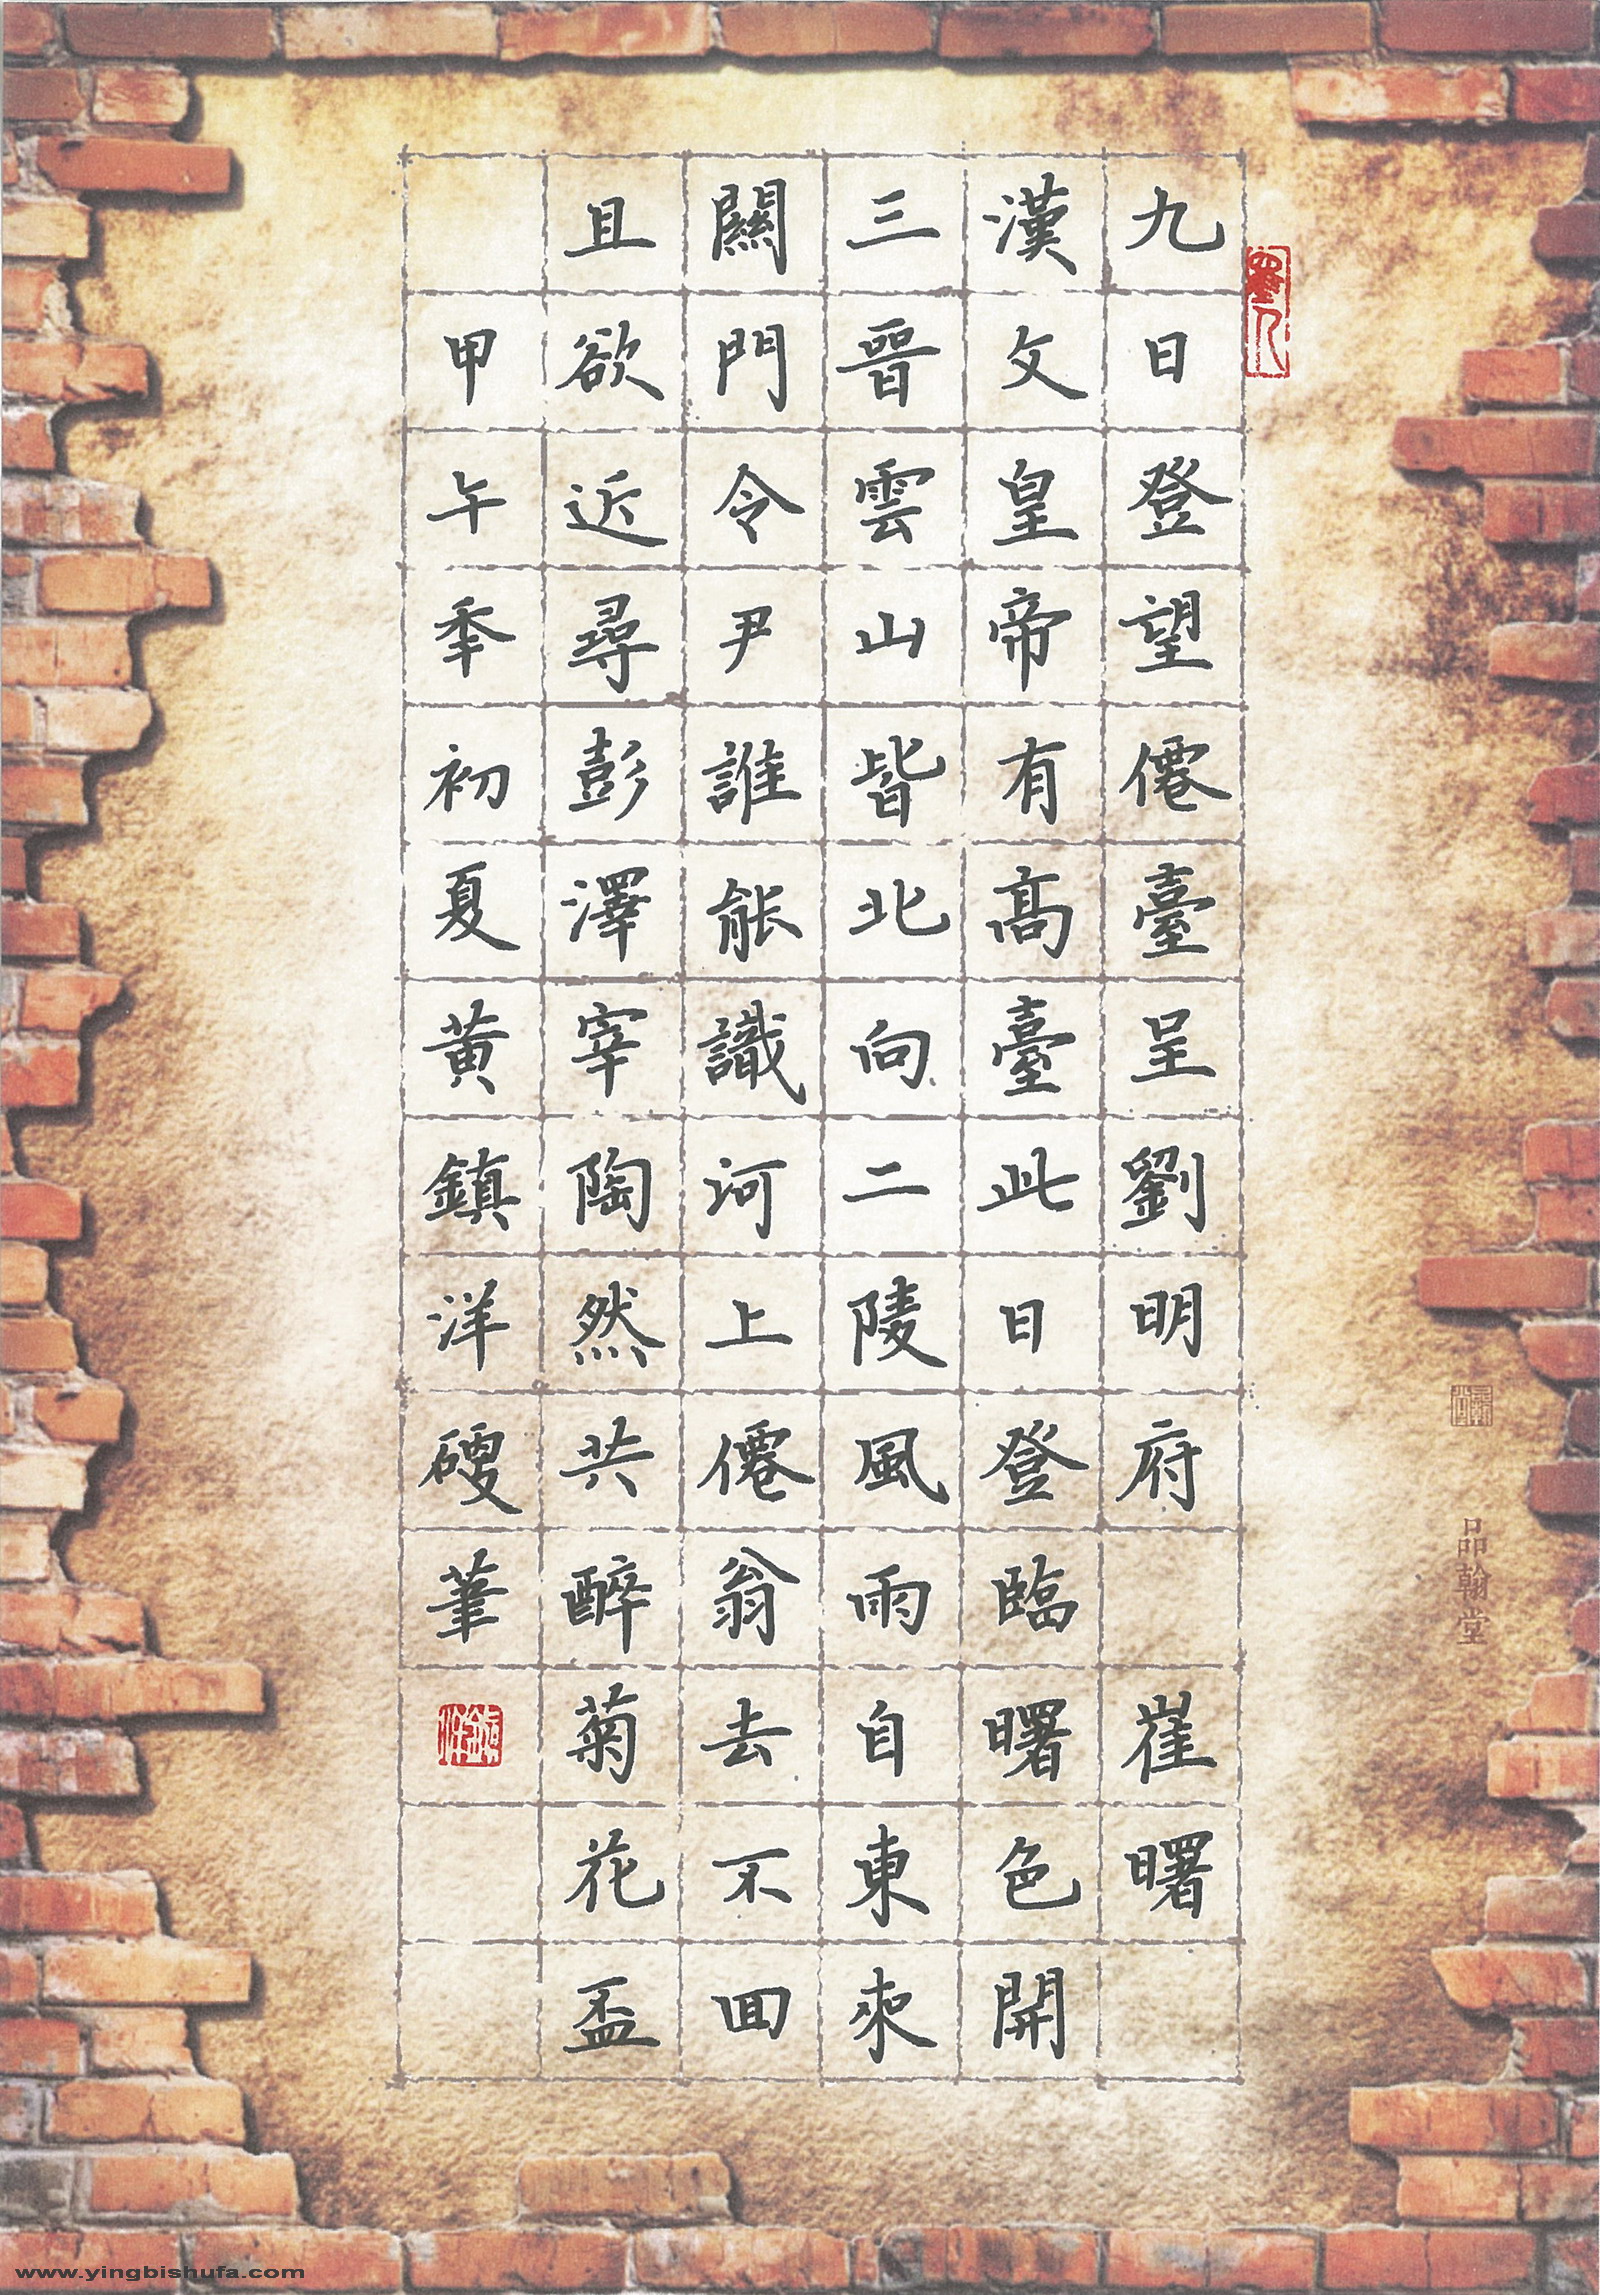 九日登望僊臺呈劉明府 崔曙
漢文皇帝有髙臺此日登臨曙色開
三晉雲山皆北向二陵風雨自東來
關門令尹誰能識河上僊翁去不囬
且欲近尋彭澤宰陶然共醉菊花盃
甲午秊初夏黃鎮洋硬筆
品翰堂
www.yingbishufa.com